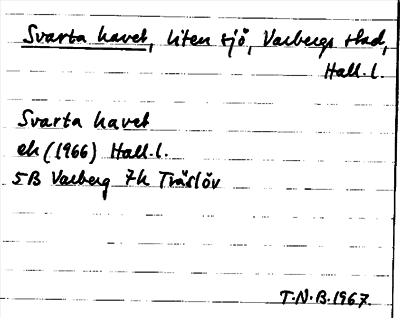 Svarta havet, liten sjö, Varbergs stad,
Hall. l.
Svarta havet
ek (1966) Hall. l.
5B Varberg 7h Träslöv
T.N.B. 1967.